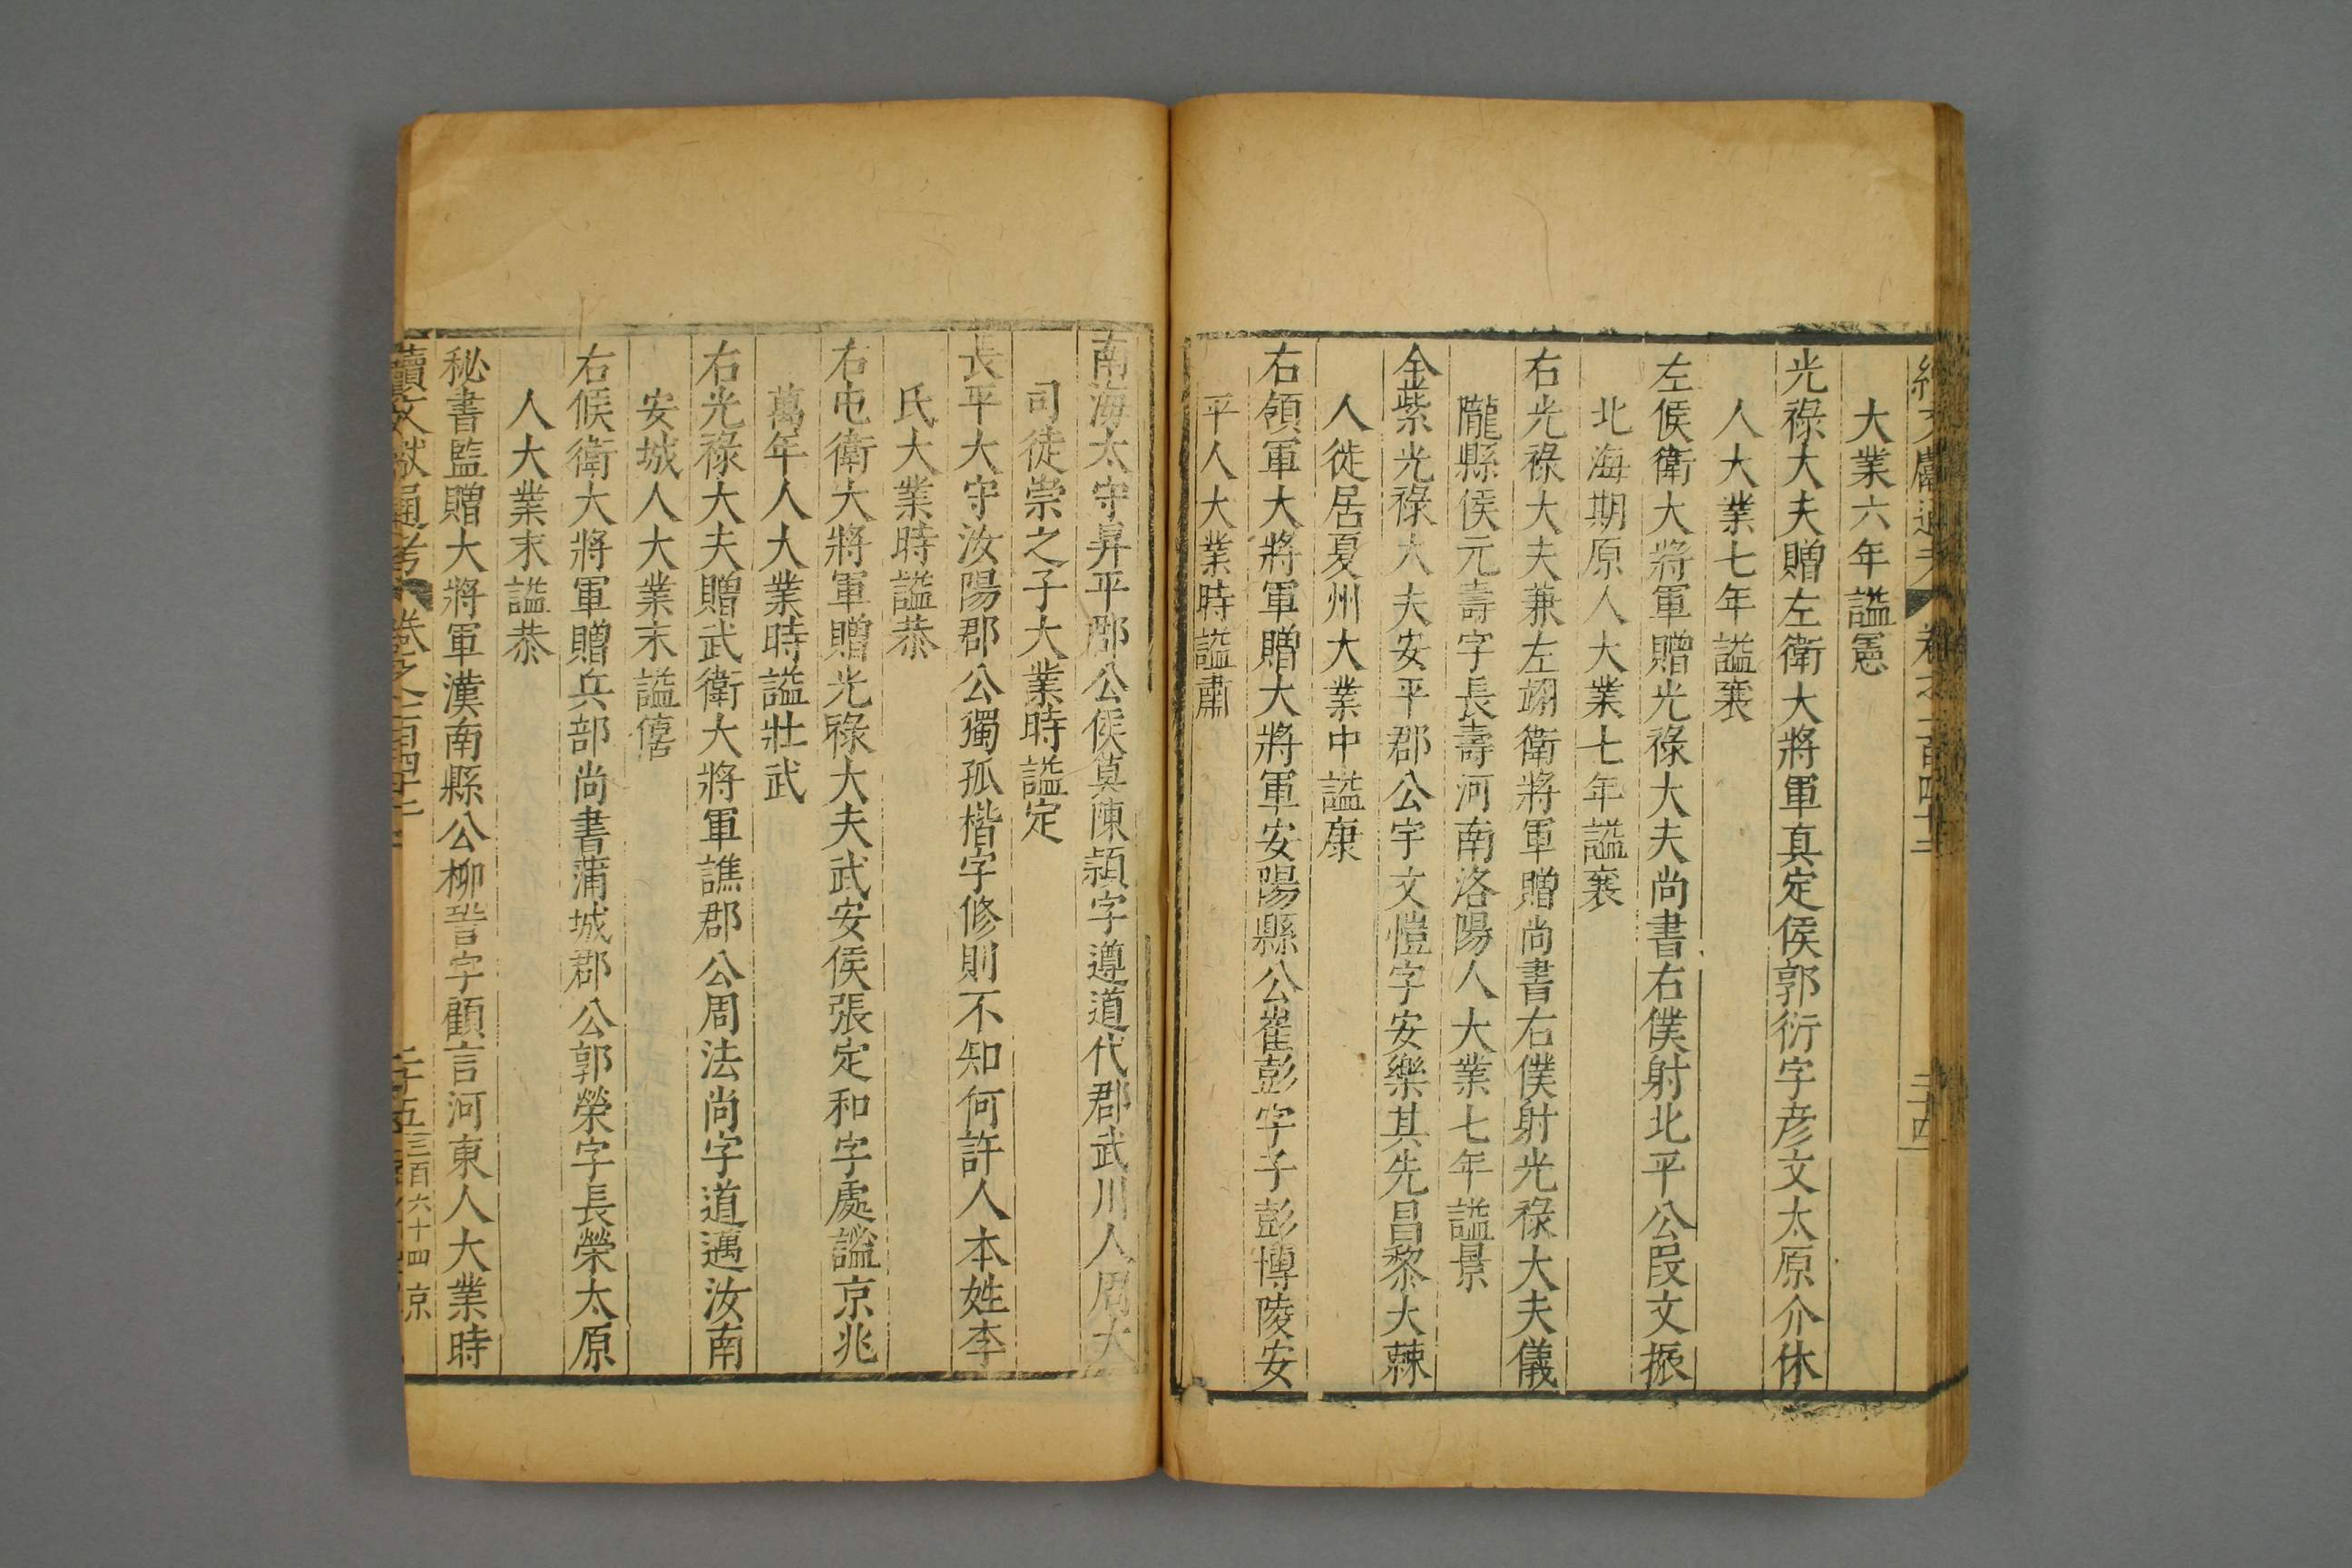 大業六年謚憲
光祿大夫贈左衛大將軍真定侯郭衍字彥文太原介休
人大業七年謚襄
左候衛大將軍贈光祿大夫尚書右僕射北平公段文振
北海期原人大業七年謚襄
右光祿大夫兼左翊衛將軍贈尚書右僕射光祿大夫儀
隴縣侯元壽字長壽河南洛陽人大業七年謚景
金紫光祿大夫安平郡公宇文愷字安樂其先昌黎大棘
人徙居夏州大業中謚康
右領軍大將軍贈大將軍安陽縣公崔彭字子彭博陵安
平人大業時謚肅
南海太守昇平郡公侯莫陳頴字遵道代郡武川人周大
司徒崇之子大業時謚定
長平大守汝陽郡公獨孤楷字修則不知何許人本姓李
氏大業時謚恭
右屯衛大將軍贈光祿大夫武安侯張定和字處謐京兆
萬年人大業時謚壯武
右光祿大夫贈武衛大將軍譙郡公周法尚字道邁汝南
安城人大業末謚僖
右候衛大將軍贈兵部尚書蒲城郡公郭榮字長榮太原
人大業末謚恭
秘書監贈大將軍漢南縣公柳䛒字顧言河東人大業時
續文獻通考 卷之一百四十二 二十五 三百六十四 京